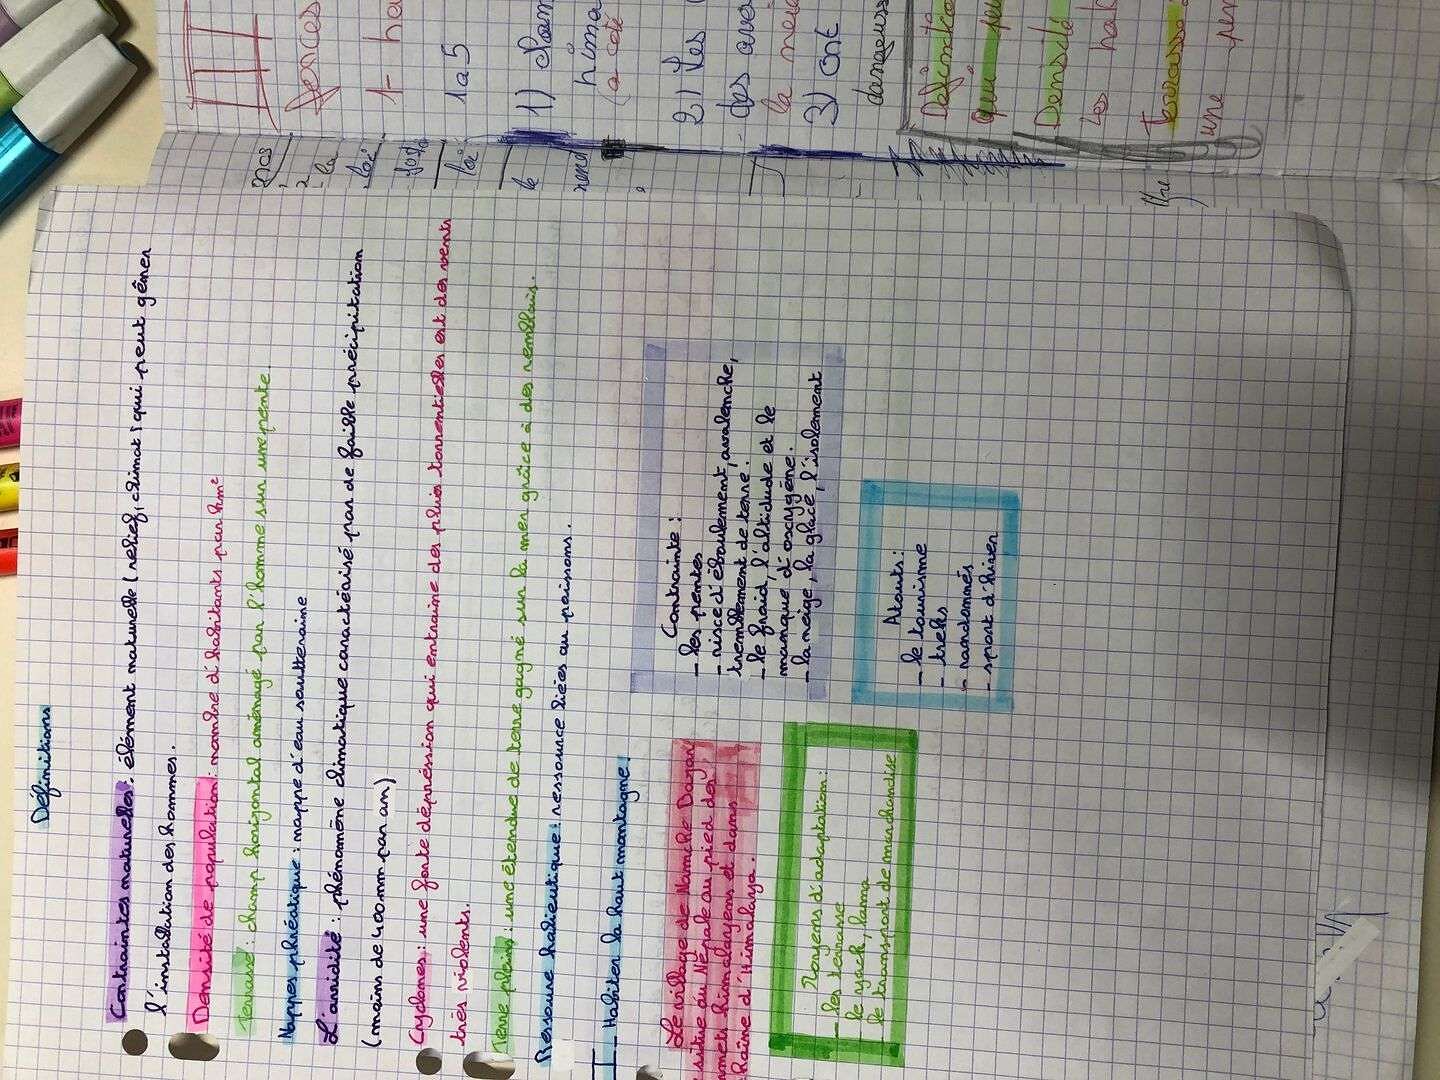 Définitions
Contraintes naturelles : élément naturelle (relief, climat) qui peut gêner
l'installation des hommes.
Densité de population : nombre d'habitants par km²
Terrasse : champ horizontal aménagé par l'homme sur une pente
Nappes phréatique : nappe d'eau souterraine
L'aridité : phénomène climatique caractéaisé par de faible précipitation
(moins de 400mm par an)
Cyclones : une forte dépréssion qui entraine des pluies torrentielles est des vents
très violents.
Terre plein : une étendue de terre gagné sur la mer grâce à des remblais.
Ressource halieutique : ressource liées au poissons.
I - Habiter la haut montagne.
Le village de Namche Bazar
situe au Népale au pied des
himalayens et dans
chaîne d'Himalaya.
Contrainte :
- les pentes
- risce d'éboulement, avalenche,
tremblement de terre.
- le froid, l'altidude et le
manque d'oxygéne.
- la neige, la glace, l'isolement
Moyens d'adaptation :
- les terrasse
- le yack, lama
- le transport de marchandise
Atouts :
- le tourisme
- treks
- randonnés
- sport d'hiver
III
1- ha
1a5
1)
hima
(a coté
2) Les
des ave
la nei
3) ont
dangeus
Densité
Les hab
une pen